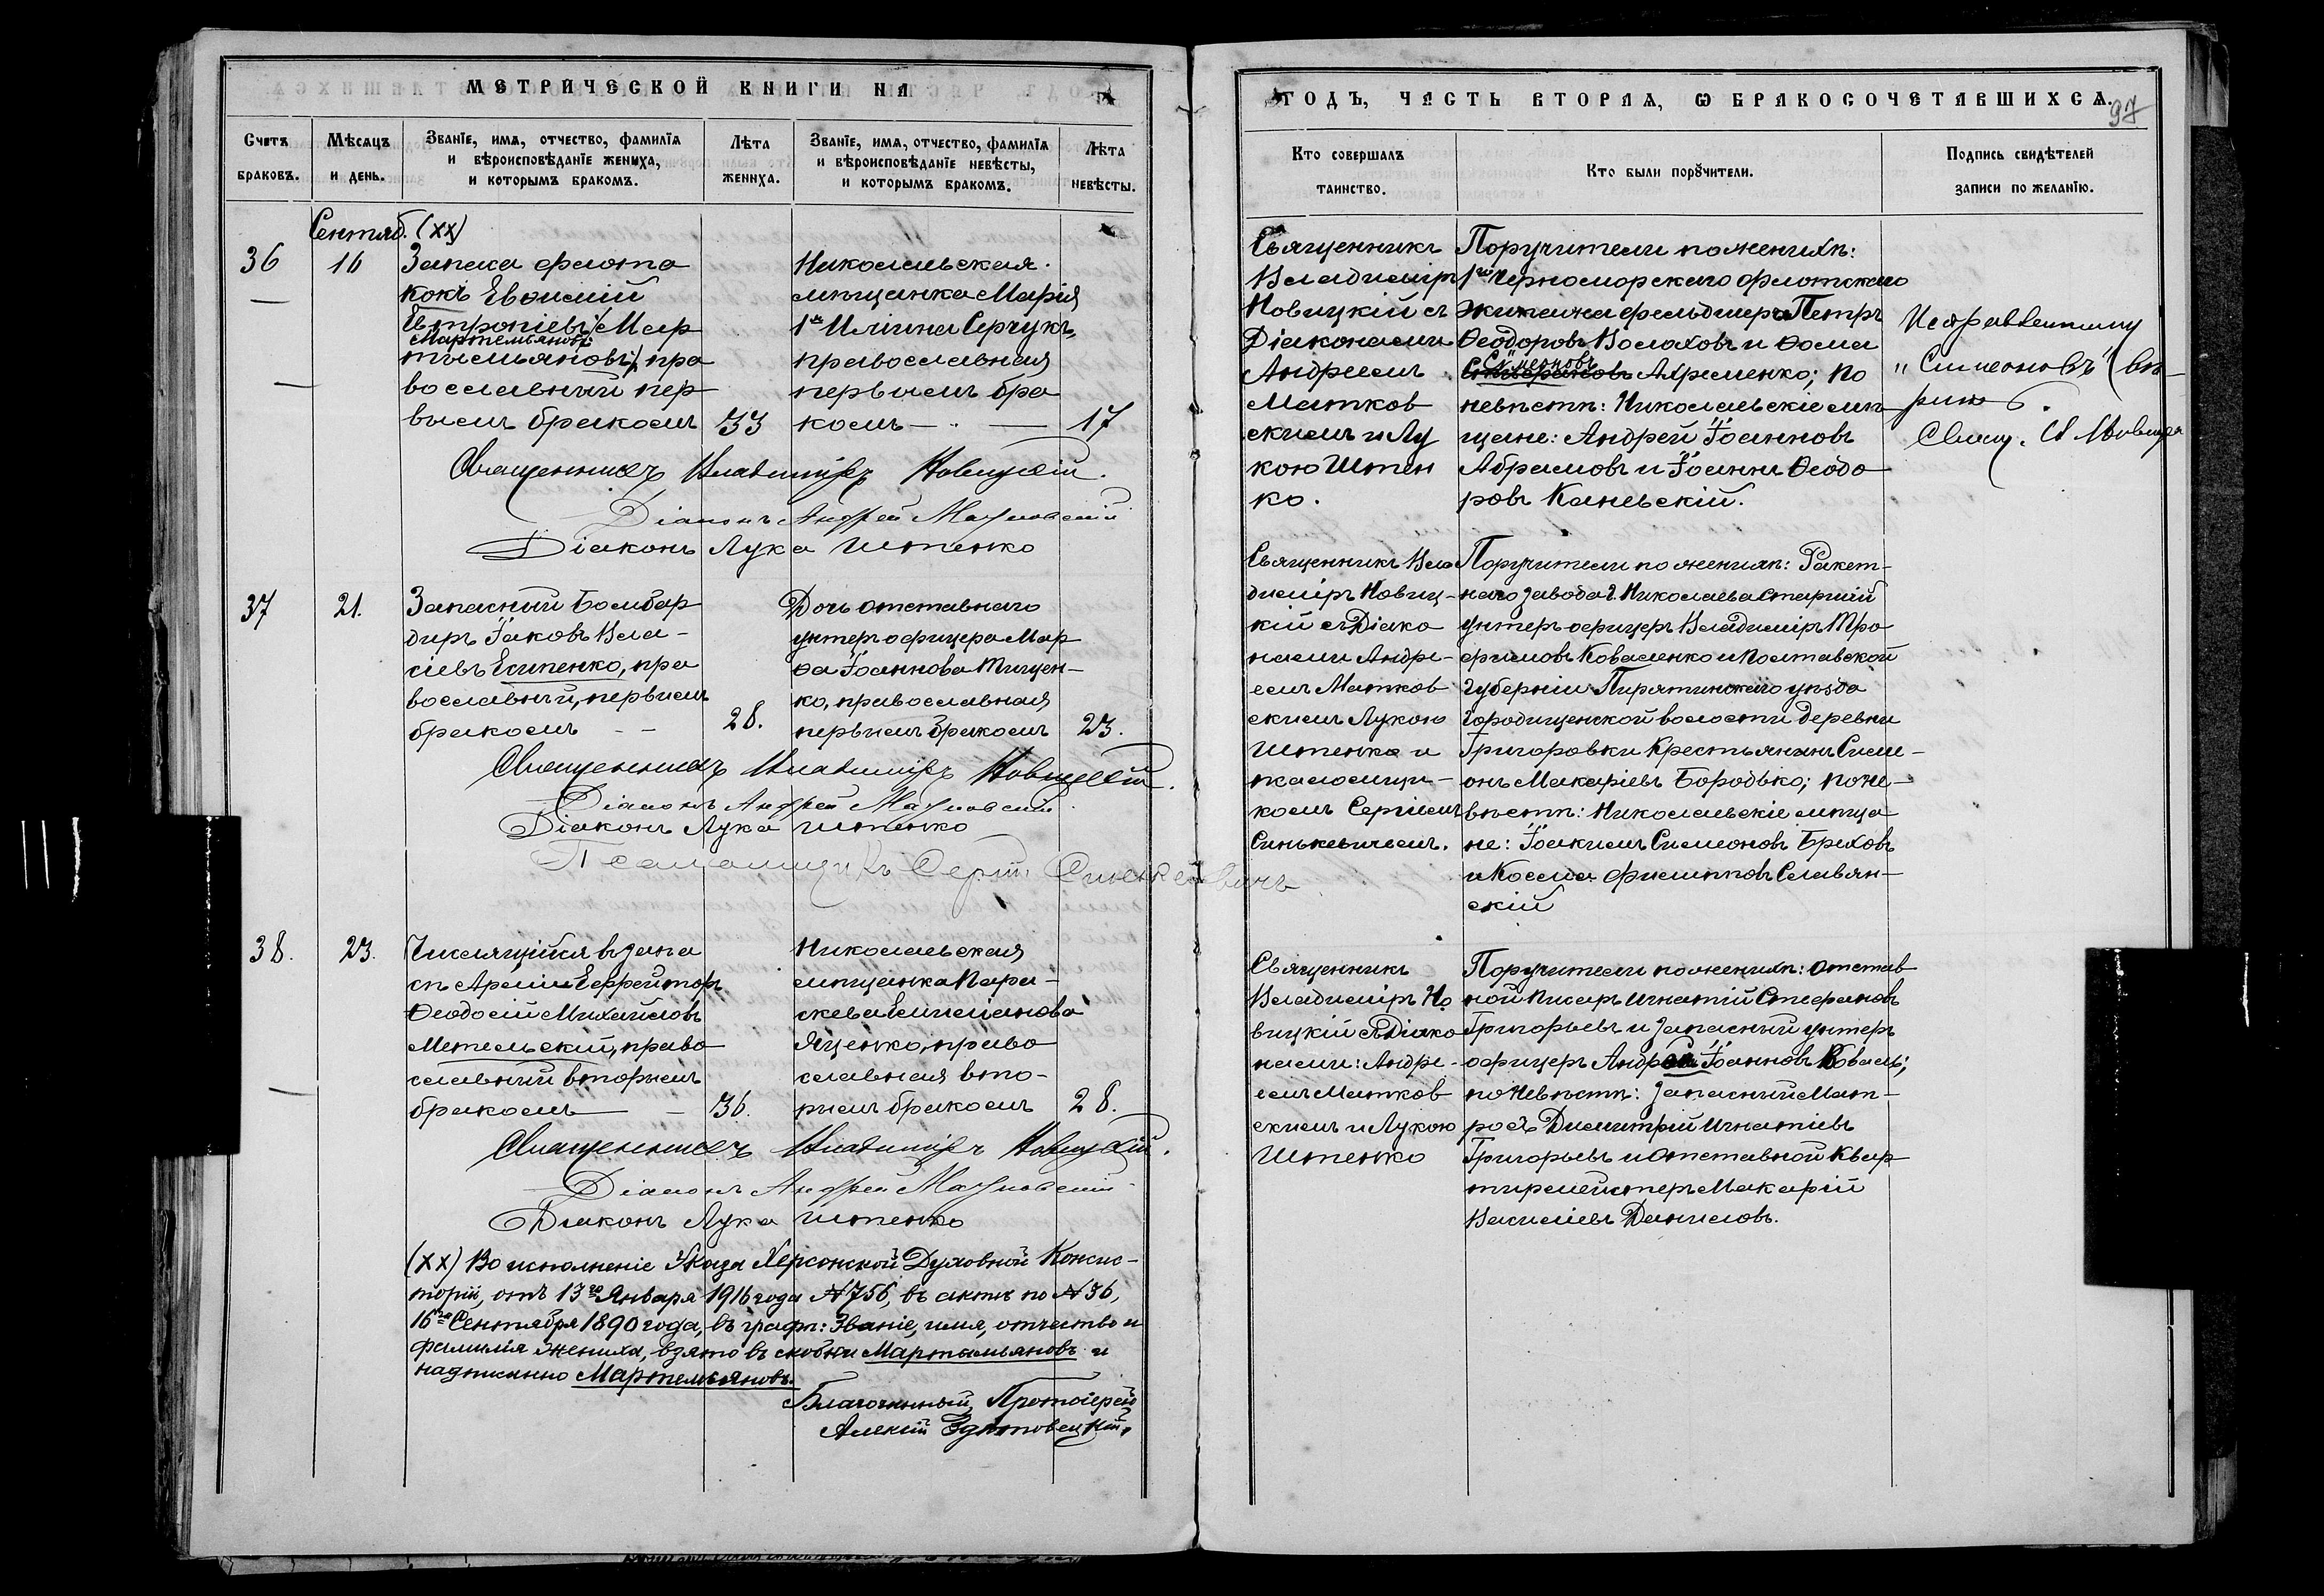 МЕТРИЧЕСКОЙ КНИГИ НА
Счетъ браковъ.
Мѣсяцъ и день.
Званіе, имя, отчество, фамилія и вѣроисповѣданіе жениха, и которымъ бракомъ.
Лѣта жениха.
Званіе, имя, отчество, фамилія и вѣроисповѣданіе невѣсты, и которымъ бракомъ.
Лѣта невѣсты.
Сентяб. (xx)
36
16
Запаса флота
кокъ Евѳимій
Евтропіевъ (Мар
Мартемьяновъ
тысьяновъ), пра
вославный пер
вымъ бракомъ
33
Николаевская
мѣщанка Марія
Иліина Серчукъ,
православная
первымъ бра
комъ
17
Священникъ Владиміръ Новицкій.
Діаконъ Андрей Матковскій
Діаконъ Лука Иштенко
37
21.
Запасный Бомбар
диръ Іаковъ Вла-
сіевъ Есипенко, пра
вославный, первымъ
бракомъ
28.
Дочь отставнаго
унтеръ офицера Мар
ѳа Іоаннова Тищен-
ко, православная
первымъ бракомъ
23.
Священникъ Владиміръ Новицкій.
Діаконъ Андрей Матковскій
Діаконъ Лука Иштенко
Псаломщикъ Сергій Синькевичъ
38.
23.
Числящійся въ запа
сѣ Арміи Ефрейторъ
Ѳеодосій Михайловъ
Метельскій, право
славный вторымъ
бракомъ
36.
Николаевская
мѣщанка Пара-
скева Емиліанова
Яценко, право
славная вто-
рымъ бракомъ
28.
Священникъ Владиміръ Новицкій.
Діаконъ Андрей Матковскій
Діаконъ Лука Иштенко
(xx) Во исполненіе Указа Херсонской Духовной Консис-
торіи, отъ 13го Января 1916 года № 756, въ актѣ по № 36,
16го Сентября 1890 года, въ графѣ: Званіе, имя, отчество и
фамилія жениха, взято въ скобки Мартымьяновъ и
надписано Мартемьяновъ.
Благочинный, Протоіерей
Алексій
ГОДЪ, ЧАСТЬ ВТОРАЯ, Ѡ БРАКОСОЧЕТАВШИХСЯ.
97
Кто совершалъ таинство.
Кто были поручители.
Подпись свидѣтелей записи по желанію.
Священникъ
Владиміръ
Новицкій съ
Діаконами
Андреемъ
Матков
скимъ и Лу
кою Иштен
ко.
Поручители по женихѣ:
1го Черноморскаго флотскаго
экипажа фельдшеръ Петръ
Ѳеодоровъ Волоховъ и Ѳома
Симеоновъ
Ахременко; по
невѣстѣ: Николаевскіе мѣ
щане: Андрей Іоанновъ
Абрамовъ и Іоаннъ Ѳеодо
ровъ Каневскій.
"Симеоновъ" (вѣ-
рно).
Свящ. В Новицк
Священникъ Вла
диміръ Новиц-
кій съ Діако
нами Андре-
емъ Матков
скимъ Лукою
Иштенко и
псаломщи-
комъ Сергіемъ
Синькевичемъ.
Поручители по женихѣ: Ракет-
наго завода г. Николаева старшій
унтеръ офицеръ Владиміръ Тро
фимовъ Коваленко и Полтавской
Губерніи Пирятинскаго уѣзда
Городищенской волости деревни
Григоровки крестьянинъ Симе-
онъ Макаріевъ Бородько; по не-
вѣстѣ: Николаевскіе мѣща
не: Іоакимъ Симеоновъ Бриховъ
и Косма Филипповъ Славян-
скій
Священникъ
Владиміръ Но
вицкій съ Діако
нами: Андре-
емъ Матков
скимъ и Лукою
Иштенко
Поручители по женихѣ: отстав
ной писарь Игнатій Стефановъ
Григорьевъ и запасный унтеръ
офицеръ Андрей Іоанновъ Коваль;
по невѣстѣ: запасный Мат-
росъ Димитрій Игнатіевъ
Григорьевъ и отставной квар
тирмейстеръ Макарій
Василіевъ Даниловъ.